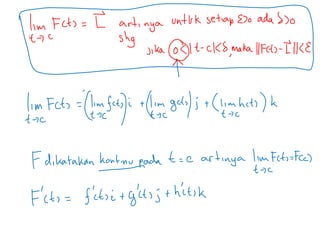 lim F(t) = L⃗ artinya untuk setiap ε>0 ada δ>0
t→c
shg
jika 0<|t-c|<δ, maka ||F(t)-L⃗||<ε
lim F(t) = (lim f(t)) i + (lim g(t)) j + (lim h(t)) k
t→c t→c t→c t→c
F dikatakan kontinu pada t=c artinya lim F(t)=F(c)
t→c
F'(t) = f'(t)i + g'(t)j + h'(t)k